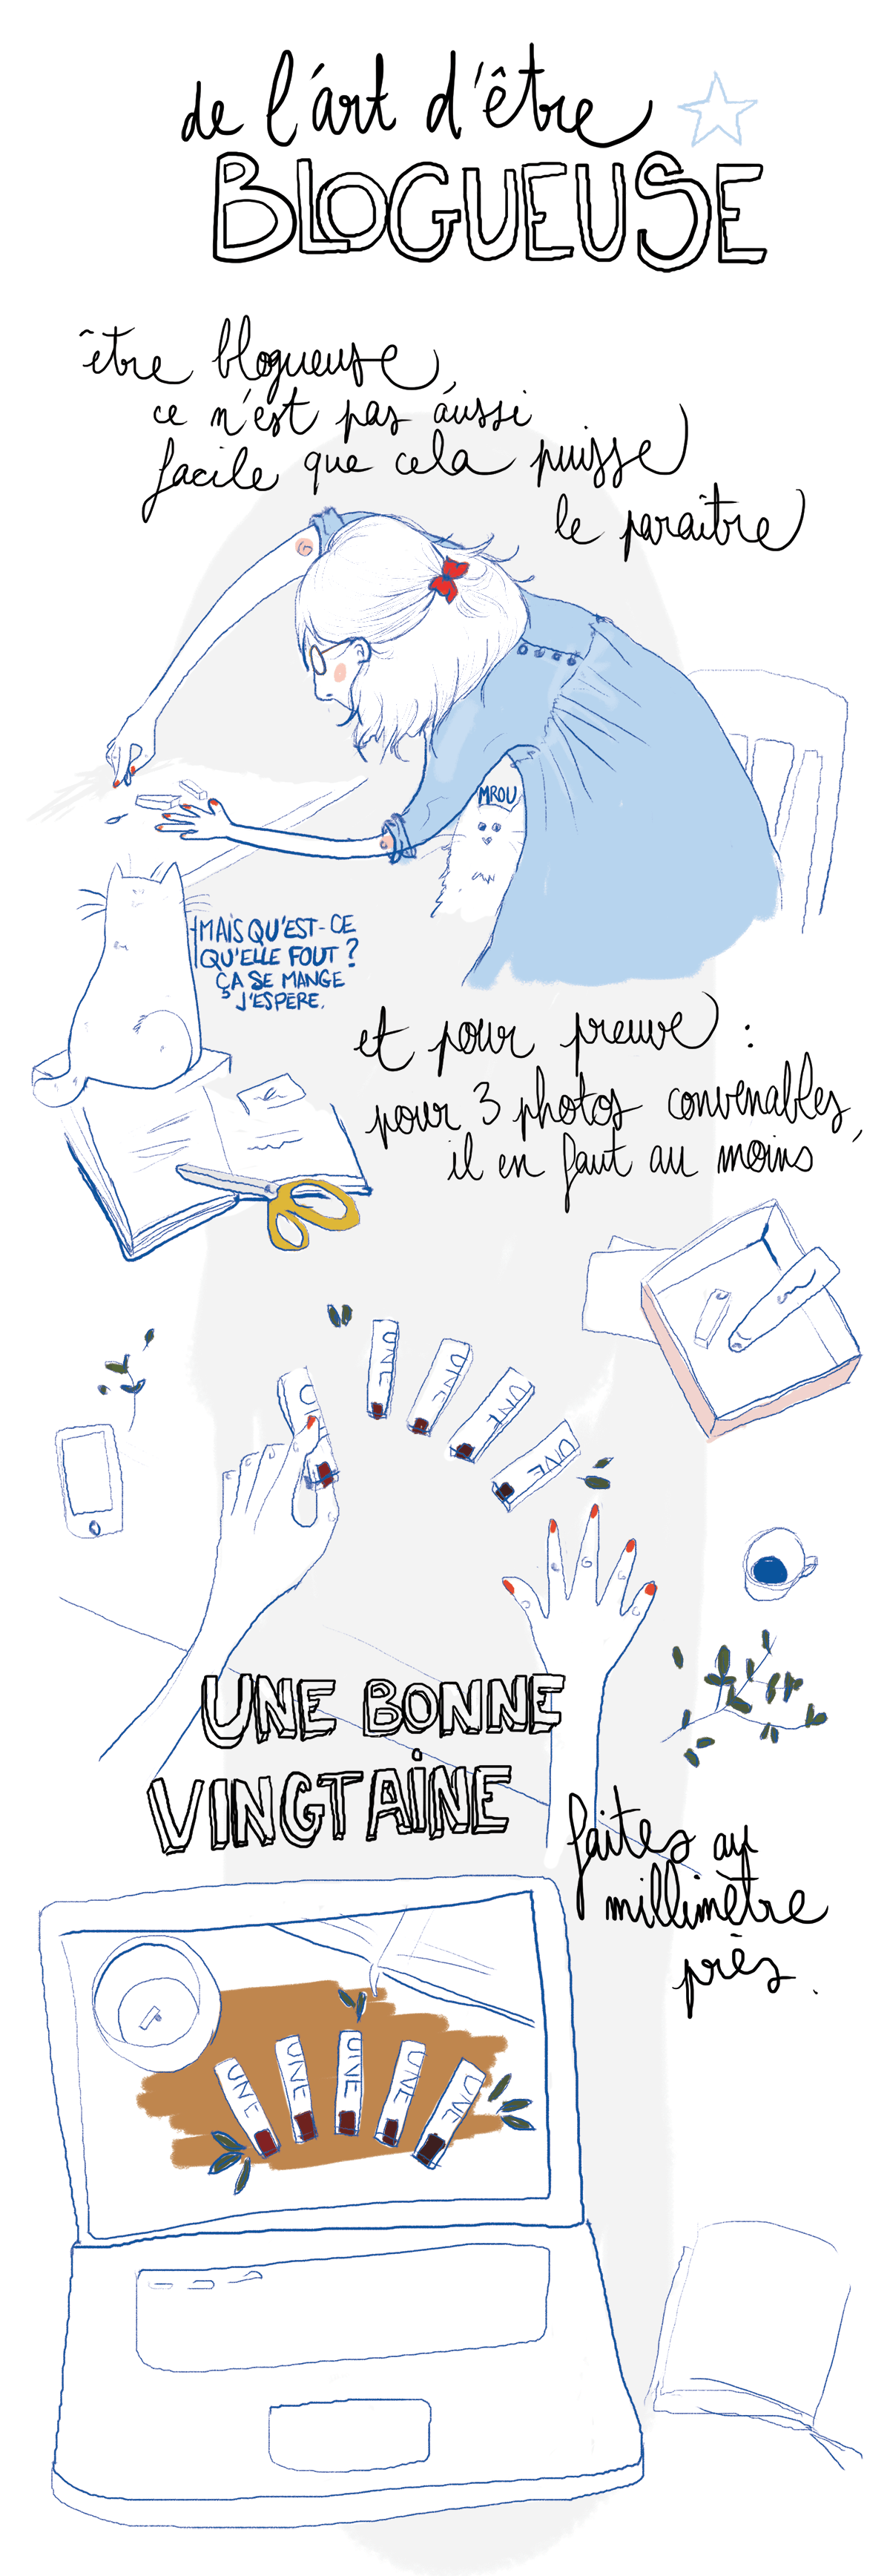 de l'art d'être
BLOGUEUSE
être blogueuse,
ce n'est pas aussi
facile que cela puisse
le paraître
MROU
MAIS QU'EST-CE
QU'ELLE FOUT ?
ÇA SE MANGE
J'ESPERE.
et pour preuve :
pour 3 photos convenables,
il en faut au moins
UNE
UNE
UNE
UNE
UNE BONNE
VINGTAINE
faites au
millimètre
près.
UNE
UNE
UNE
UNE
UNE